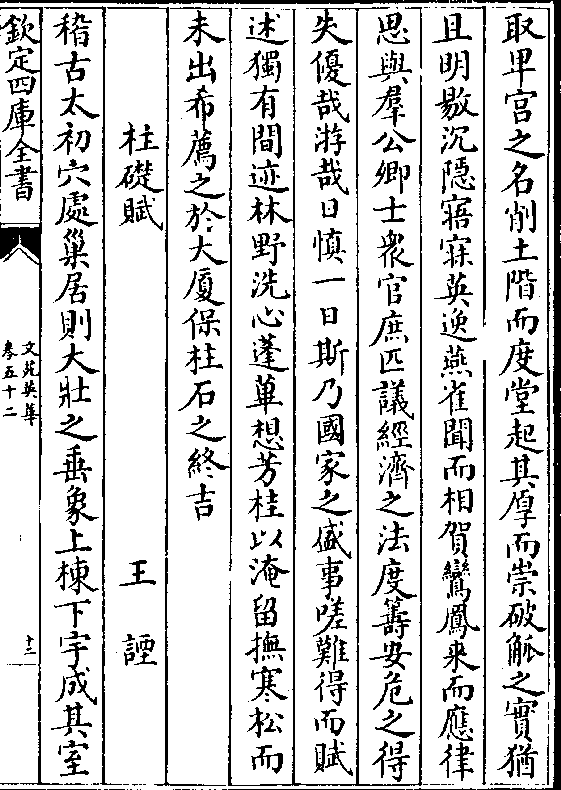 取卑宫之名削土階而度堂起其厚而崇破觚之實猶
且明敭沉隱寤寐英逸燕雀聞而相賀鸞鳳来而應律
思與羣公卿士衆官庶匹議經濟之法度籌安危之得
失優哉游哉日慎一日斯乃國家之盛事嗟難得而賦
述獨有間迹林野洗心蓬蓽想芳桂以淹留撫寒松而
未出希薦之於大厦保柱石之終吉
柱礎賦　王諲
稽古太初穴處巢居則大壯之垂象上棟下宇成其室
欽定四庫全書
文苑英華
卷五十二
十二